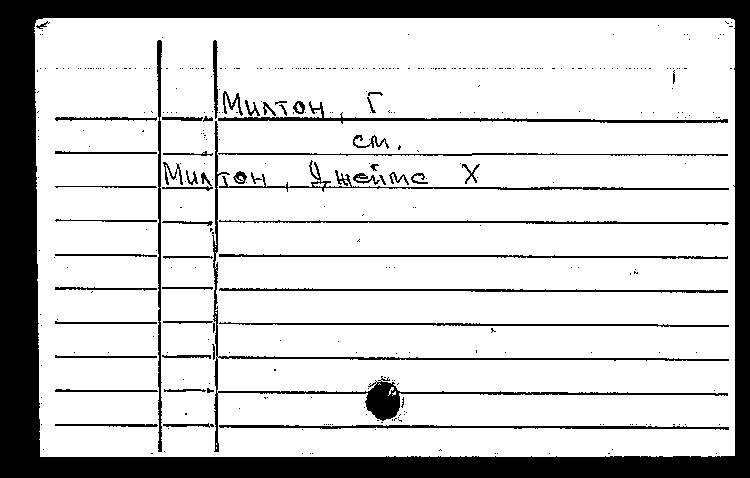 Милтон, Г
см.
Милтон, Джеймс Х